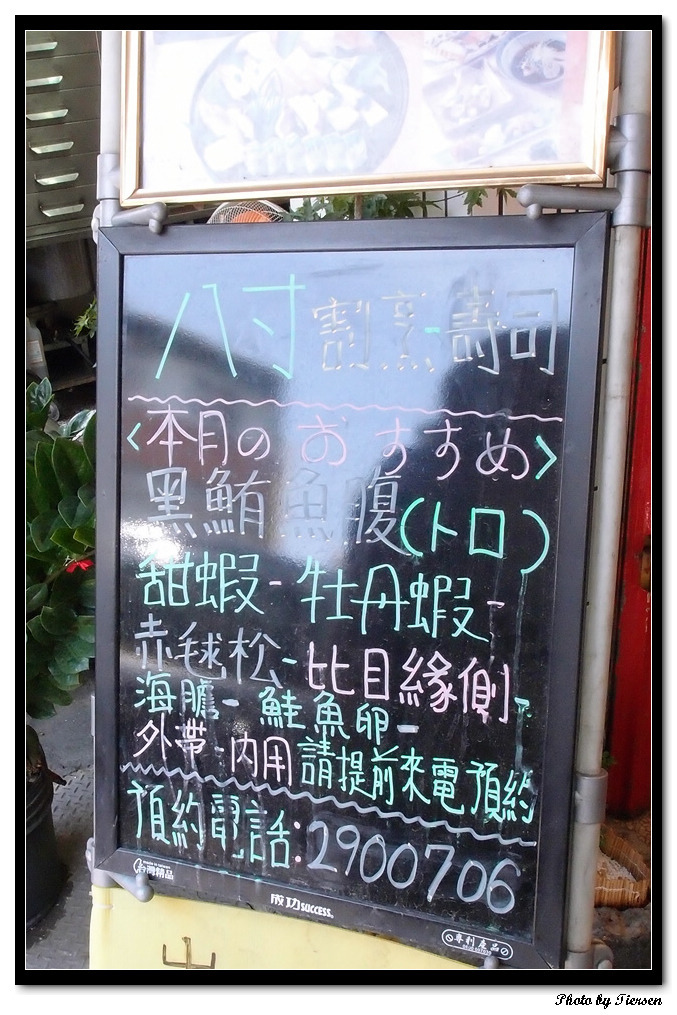 八寸割烹-壽司
<本月のおすすめ>
黑鮪魚腹(トロ)
甜蝦-牡丹蝦-
赤毬松-比目緣側-
海膽-鮭魚卵-
外帶-內用請提前來電預約
預約電話:2900706
台灣精品
成功SUCCESS.
專利產品
出
Photo by Tiersen